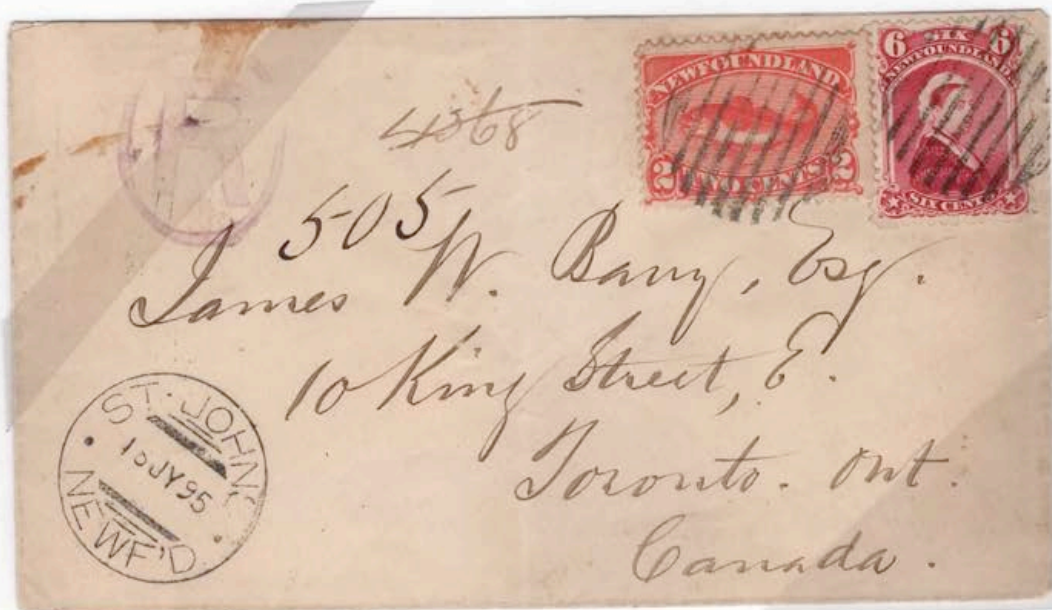 R
4368
NEWFOUNDLAND
2 TWO CENTS 2
6 SIX 6
NEWFOUNDLAND
SIX CENTS
505
James W. Barry, Esq.
10 King Street, E.
Toronto. Ont.
Canada.
ST. JOHN'S
JY 95
NEWF'D.